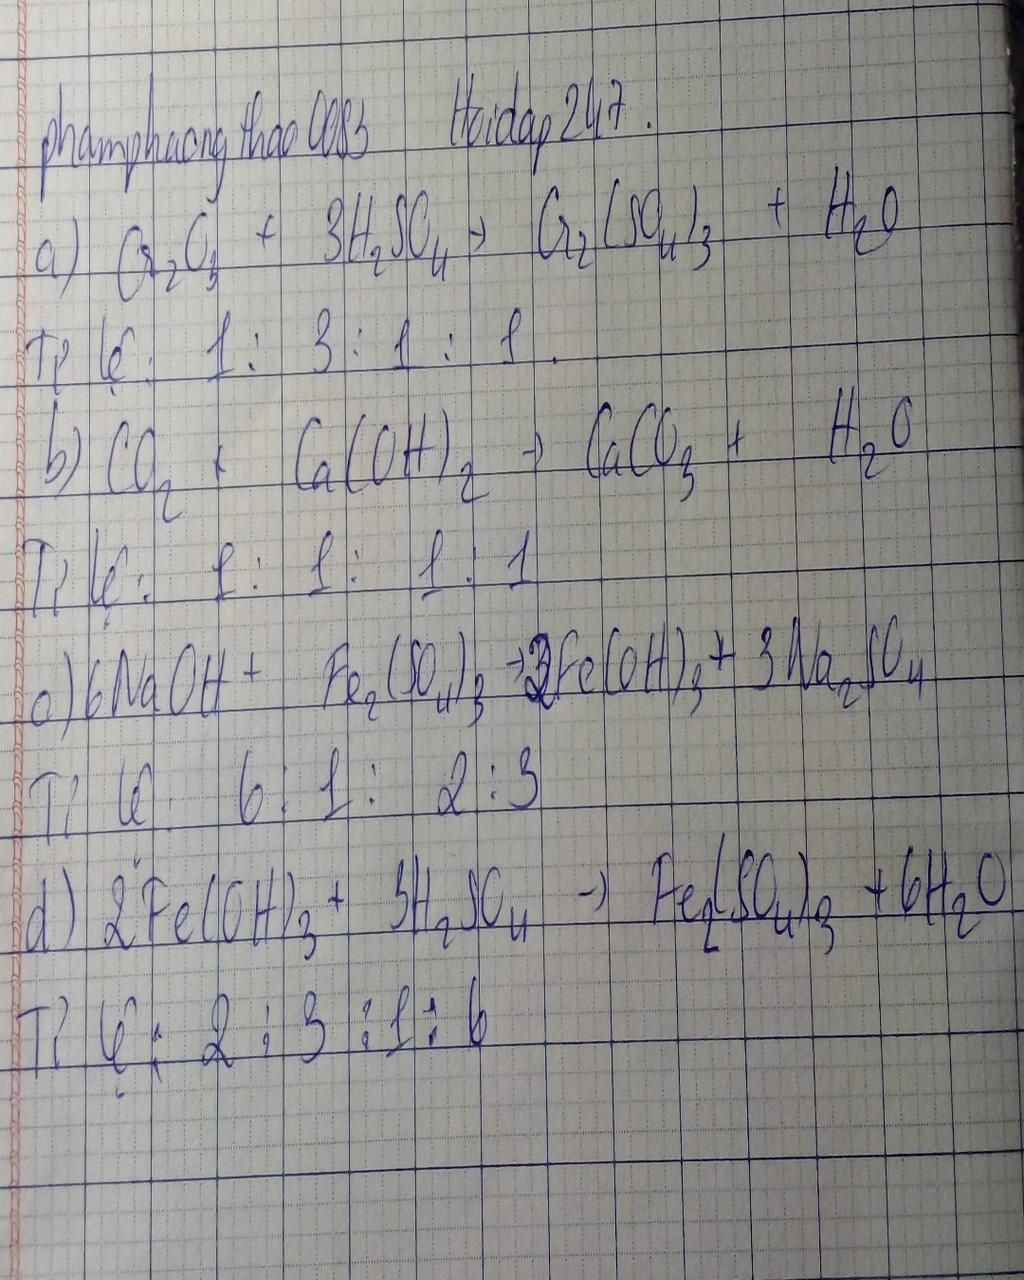 phamphuongthao0083 Hoidap247.
a) Cr₂O₃ + 3H₂SO₄ → Cr₂(SO₄)₃ + H₂O
Tỉ lệ: 1 : 3 : 1 : 1.
b) CO₂ + Ca(OH)₂ → CaCO₃ + H₂O
Tỉ lệ: 1 : 1 : 1 : 1
c) 6NaOH + Fe₂(SO₄)₃ → 2Fe(OH)₃ + 3Na₂SO₄
Tỉ lệ: 6 : 1 : 2 : 3
d) 2Fe(OH)₃ + 3H₂SO₄ → Fe₂(SO₄)₃ + 6H₂O
Tỉ lệ: 2 : 3 : 1 : 6